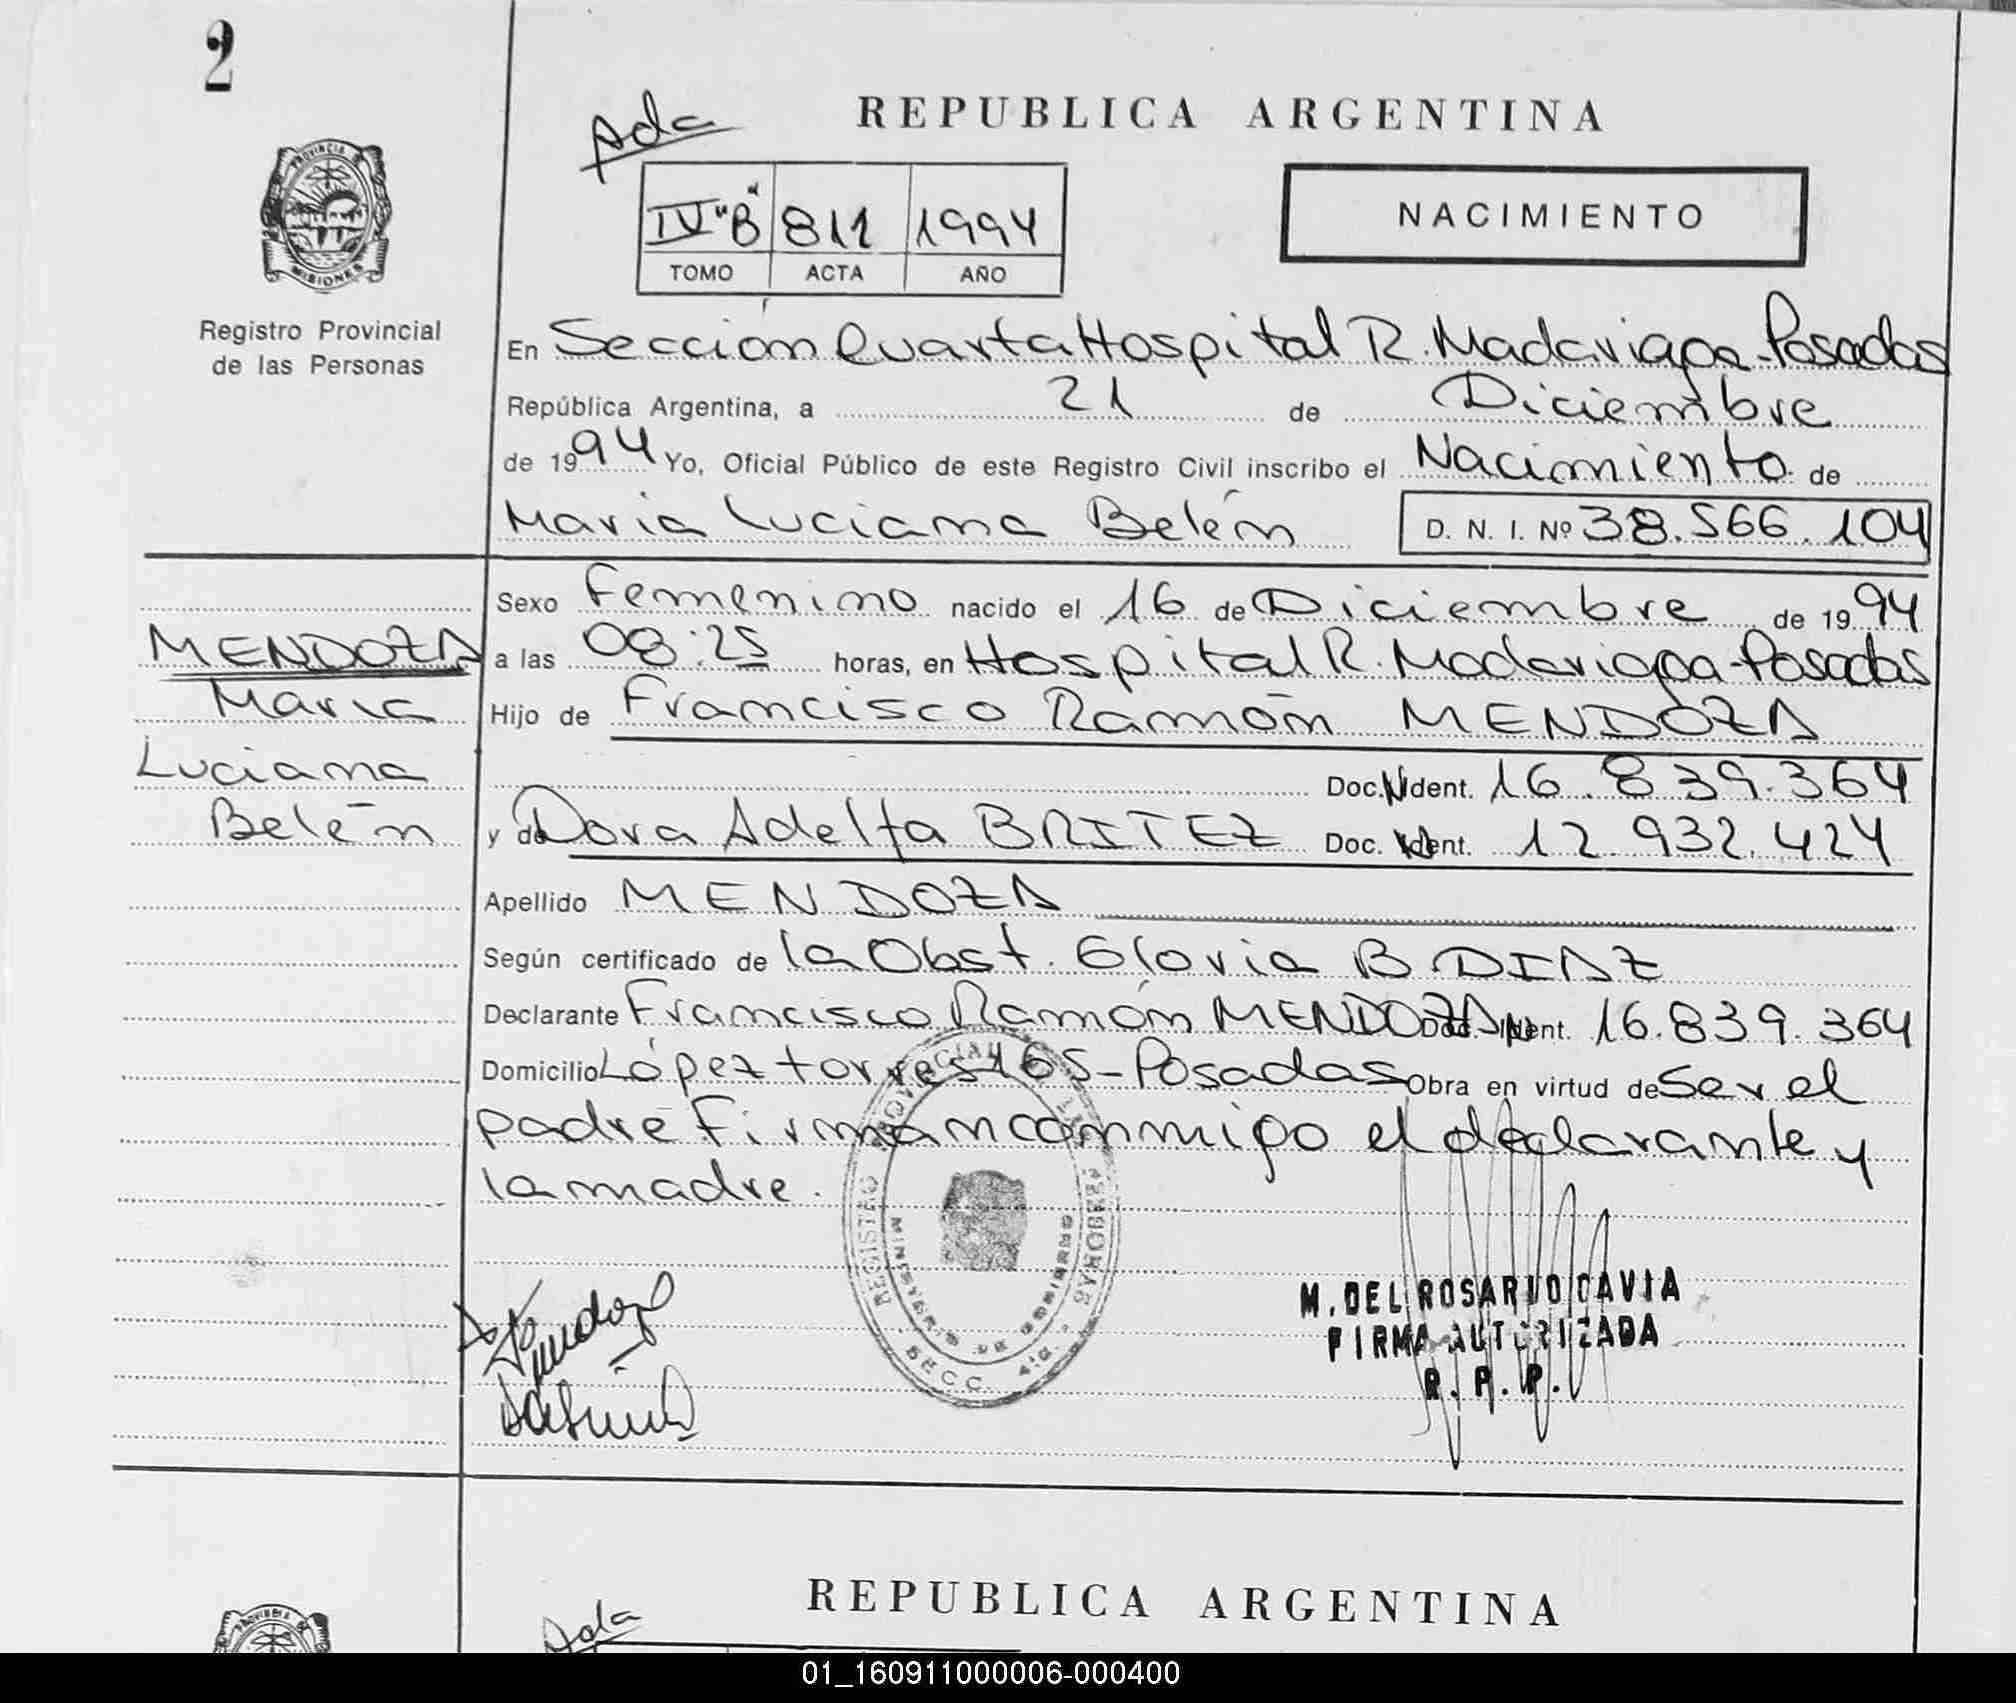 2
Ada
REPUBLICA ARGENTINA
NACIMIENTO
IV "B" 811 1994
TOMO ACTA AÑO
PROVINCIA DE
MISIONES
Registro Provincial
de las Personas
En Sección Cuarta Hospital R. Madariaga-Posadas
República Argentina, a 21 de Diciembre
de 1994 Yo, Oficial Público de este Registro Civil inscribo el Nacimiento de
Maria Luciana Belén D. N. I. Nº 38.566.104
Sexo Femenino nacido el 16 de Diciembre de 1994
MENDOZA
Maria
Luciana
Belén
a las 08:25 horas, en Hospital R. Madariaga-Posadas
Hijo de Francisco Ramón MENDOZA
Doc. Ident. 16.839.364
y de Dora Adelfa BRITEZ Doc. Ident. 12.932.424
Apellido MENDOZA
Según certificado de la Obst. Gloria B DIAZ
Declarante Francisco Ramón MENDOZA Doc. Ident. 16.839.364
Domicilio López torres 165-Posadas Obra en virtud de Ser el
padre Firman conmigo el declarante y
la madre.
REGISTRO PROVINCIAL DE LAS PERSONAS
MINISTERIO DE GOBIERNO
SECC. 4ta.
M. DEL ROSARIO CAVIA
FIRMA AUTORIZADA
R. P. P.
REPUBLICA ARGENTINA
Ada
PROVINCIA DE
01_160911000006-000400